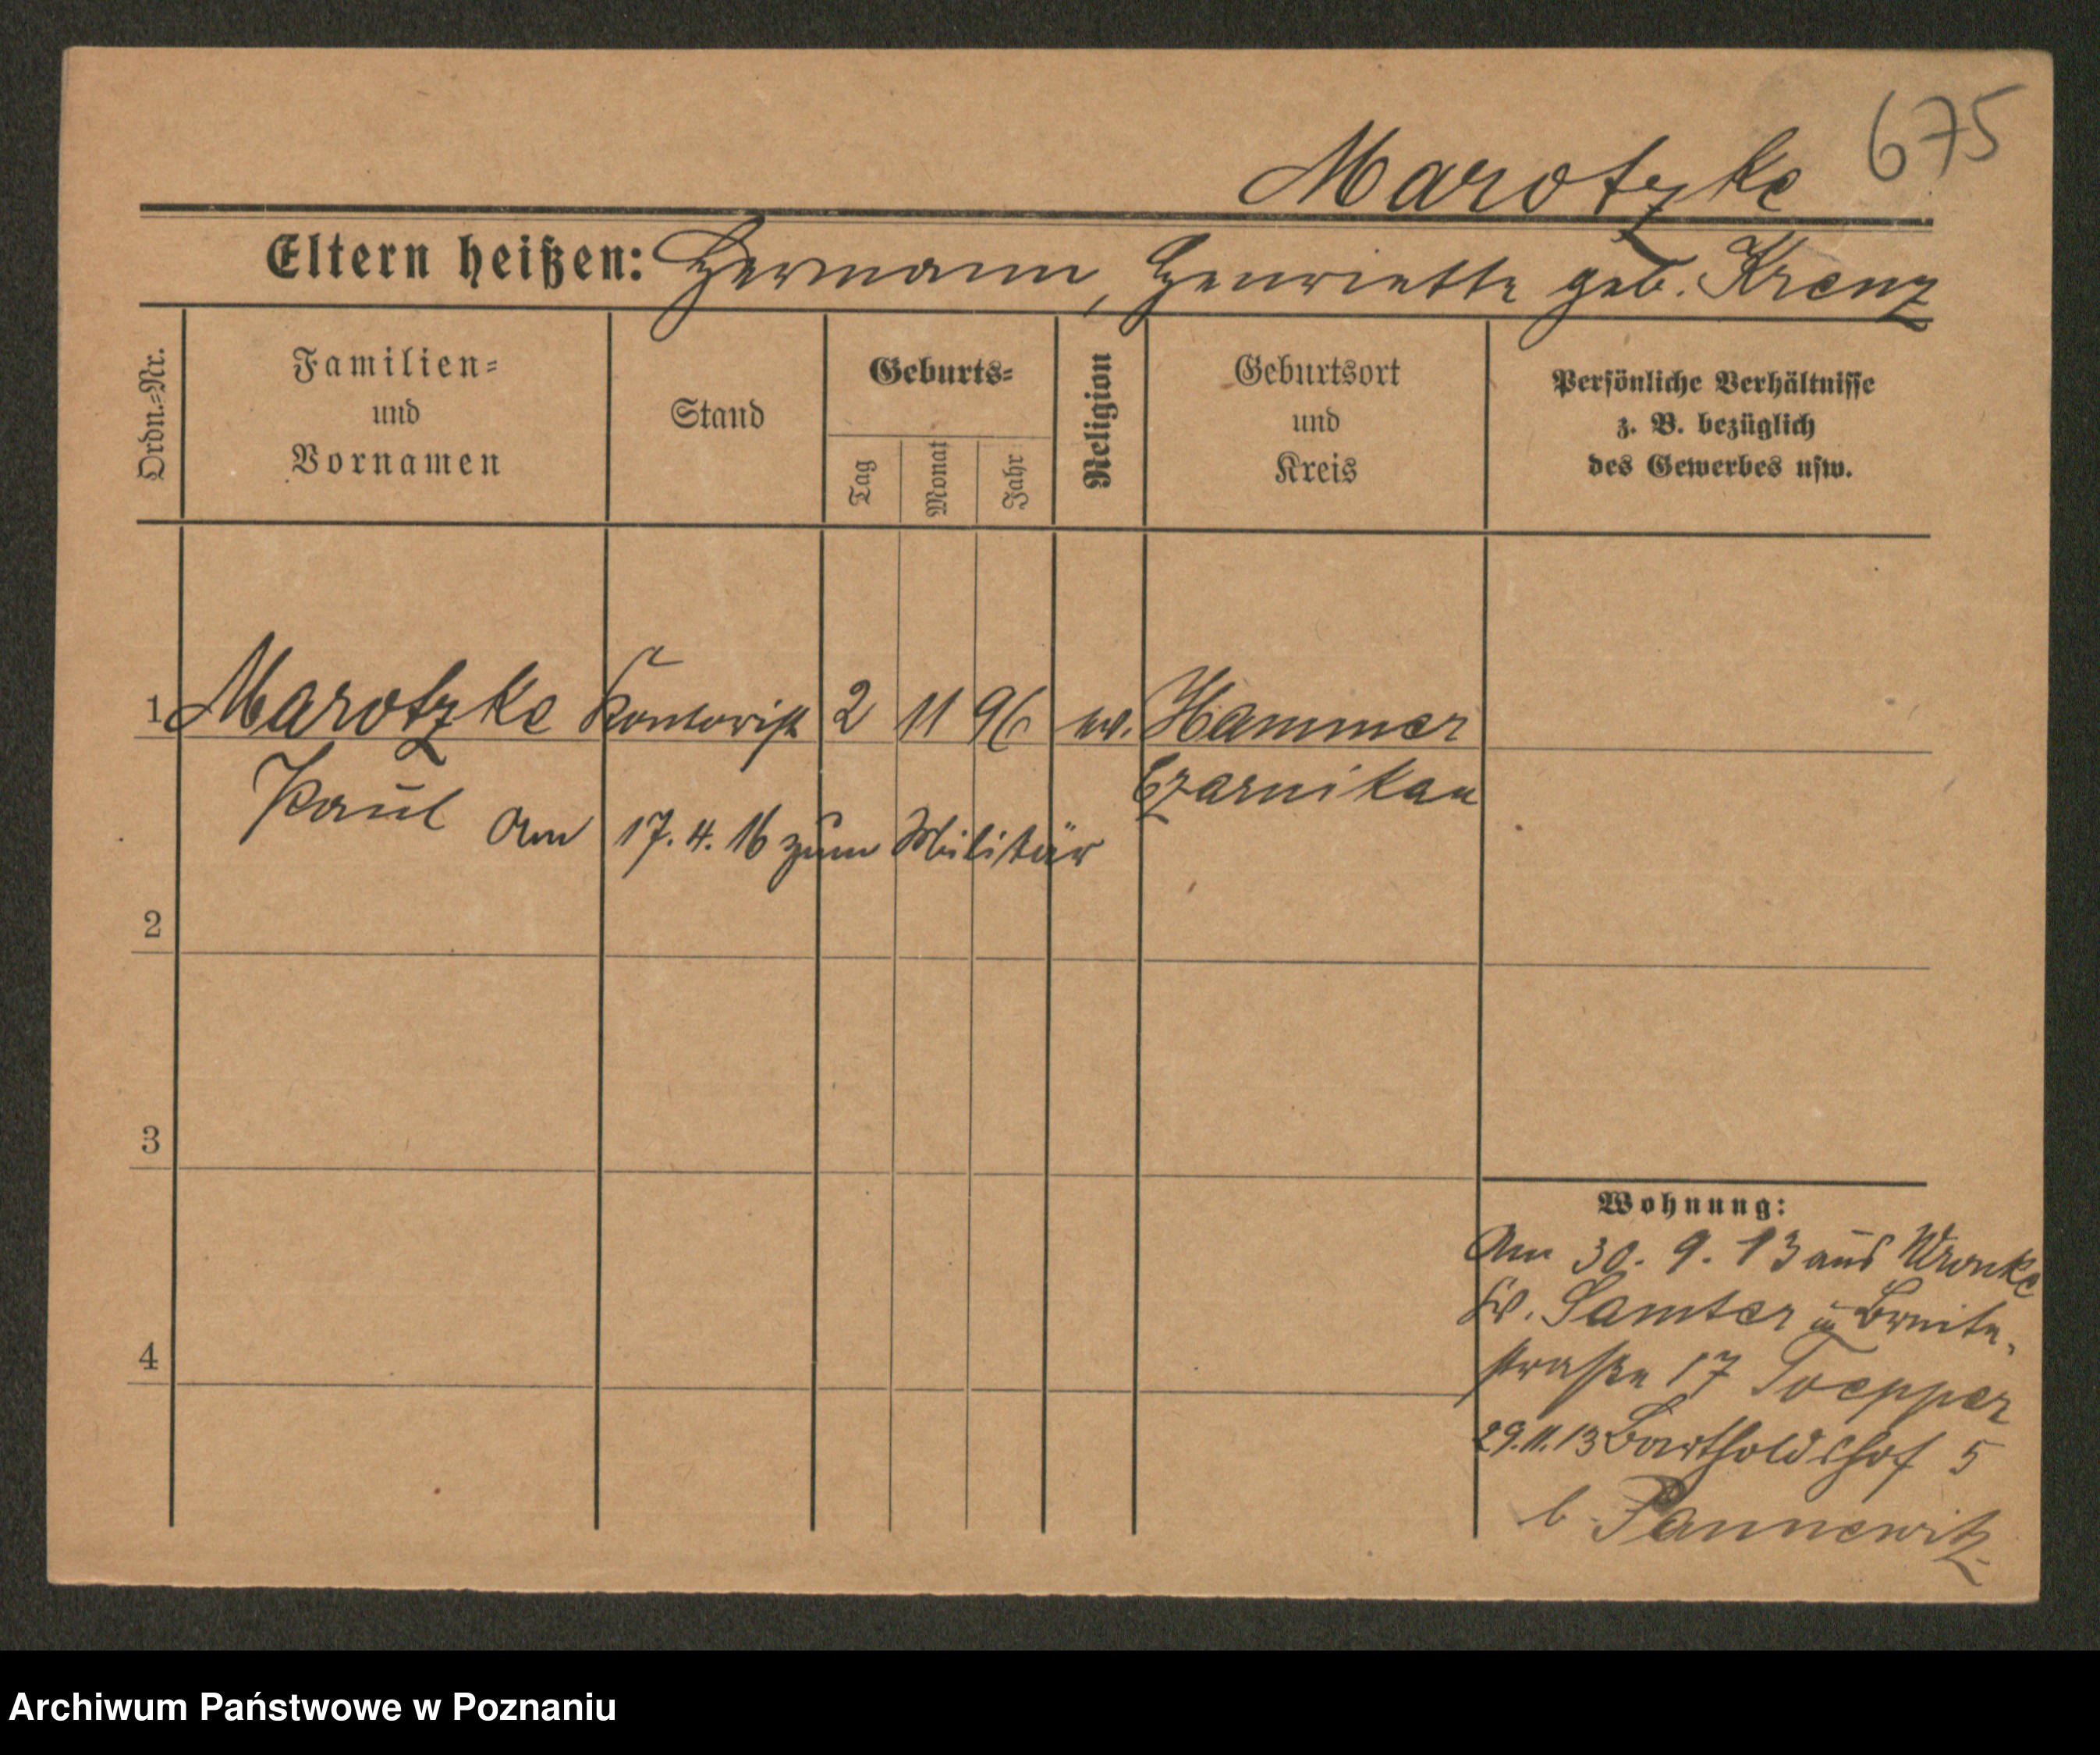 675
Marotzke
Eltern heißen: Hermann, Henriette geb. Krenz
Ordn.=Nr.
Familien=
und
Vornamen
Stand
Geburts=
Tag
Monat
Jahr
Religion
Geburtsort
und
Kreis
Persönliche Verhältnisse
z. B. bezüglich
des Gewerbes usw.
1 Marotzke Kontorist 2 11 96 ev. Hammer
Paul Czarnikau
Am 17. 4. 16 zum Militär
2
3
4
Wohnung:
Am 30. 9. 13 aus Wronke
Kr. Samter in Breite-
straße 17 Toepper
29.11.13 Bartholdshof 5
b. Pannewitz
Archiwum Państwowe w Poznaniu